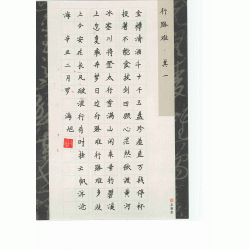 行路难·其一
金樽清酒斗十千玉盘珍羞直万钱停杯
投箸不能食拔剑四顾心茫然欲渡黄河
冰塞川将登太行雪满山闲来垂钓碧溪
上忽复乘舟梦日边行路难行路难多歧
路今安在长风破浪会有时直挂云帆济沧
海 辛丑二月 罗海旭